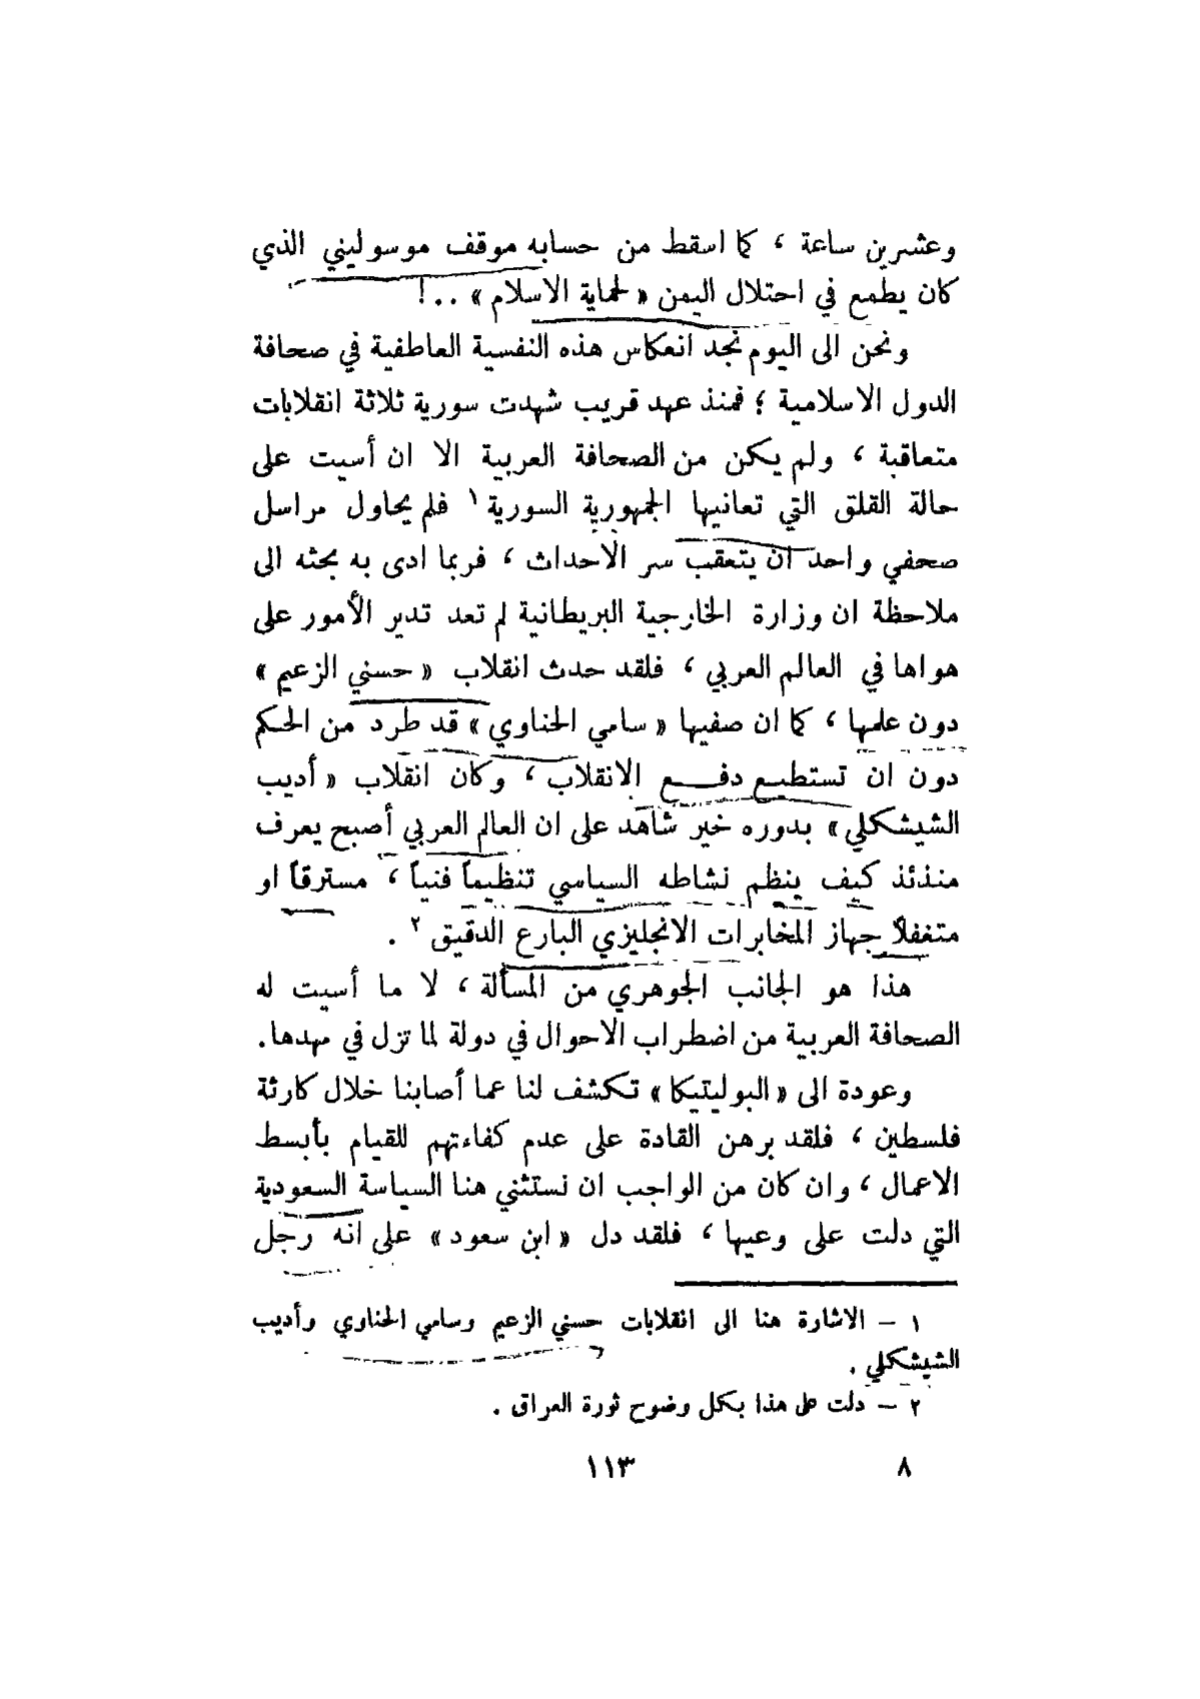 وعشرين ساعة ، كما اسقط من حسابه موقف موسوليني الذي
كان يطمع في احتلال اليمن « لحماية الاسلام » ..!
ونحن الى اليوم نجد انعكاس هذه النفسية العاطفية في صحافة
الدول الاسلامية ؛ فمنذ عهد قريب شهدت سورية ثلاثة انقلابات
متعاقبة ، ولم يكن من الصحافة العربية الا ان أسيت على
حالة القلق التي تعانيها الجمهورية السورية ١ فلم يحاول مراسل
صحفي واحد ان يتعقب سر الاحداث ، فربما ادى به بحثه الى
ملاحظة ان وزارة الخارجية البريطانية لم تعد تدير الأمور على
هواها في العالم العربي ، فلقد حدث انقلاب « حسني الزعيم »
دون علمها ، كما ان صفيها « سامي الحناوي » قد طرد من الحكم
دون ان تستطيع دفع الانقلاب ، وكان انقلاب « أديب
الشيشكلي » بدوره خير شاهد على ان العالم العربي أصبح يعرف
منذئذ كيف ينظم نشاطه السياسي تنظيماً فنياً ، مسترقاً او
متغفلاً جهاز المخابرات الانجليزي البارع الدقيق ٢ .
هذا هو الجانب الجوهري من المسألة ، لا ما أسيت له
الصحافة العربية من اضطراب الاحوال في دولة لما تزل في مهدها.
وعودة الى « البوليتيكا » تكشف لنا عما أصابنا خلال كارثة
فلسطين ، فلقد برهن القادة على عدم كفاءتهم للقيام بأبسط
الاعمال ، وان كان من الواجب ان نستثني هنا السياسة السعودية
التي دلت على وعيها ، فلقد دل « ابن سعود » على انه رجل
١ – الاشارة هنا الى انقلابات حسني الزعيم وسامي الحناوي وأديب
الشيشكلي .
٢ – دلت على هذا بكل وضوح ثورة العراق .
٨ ١١٣